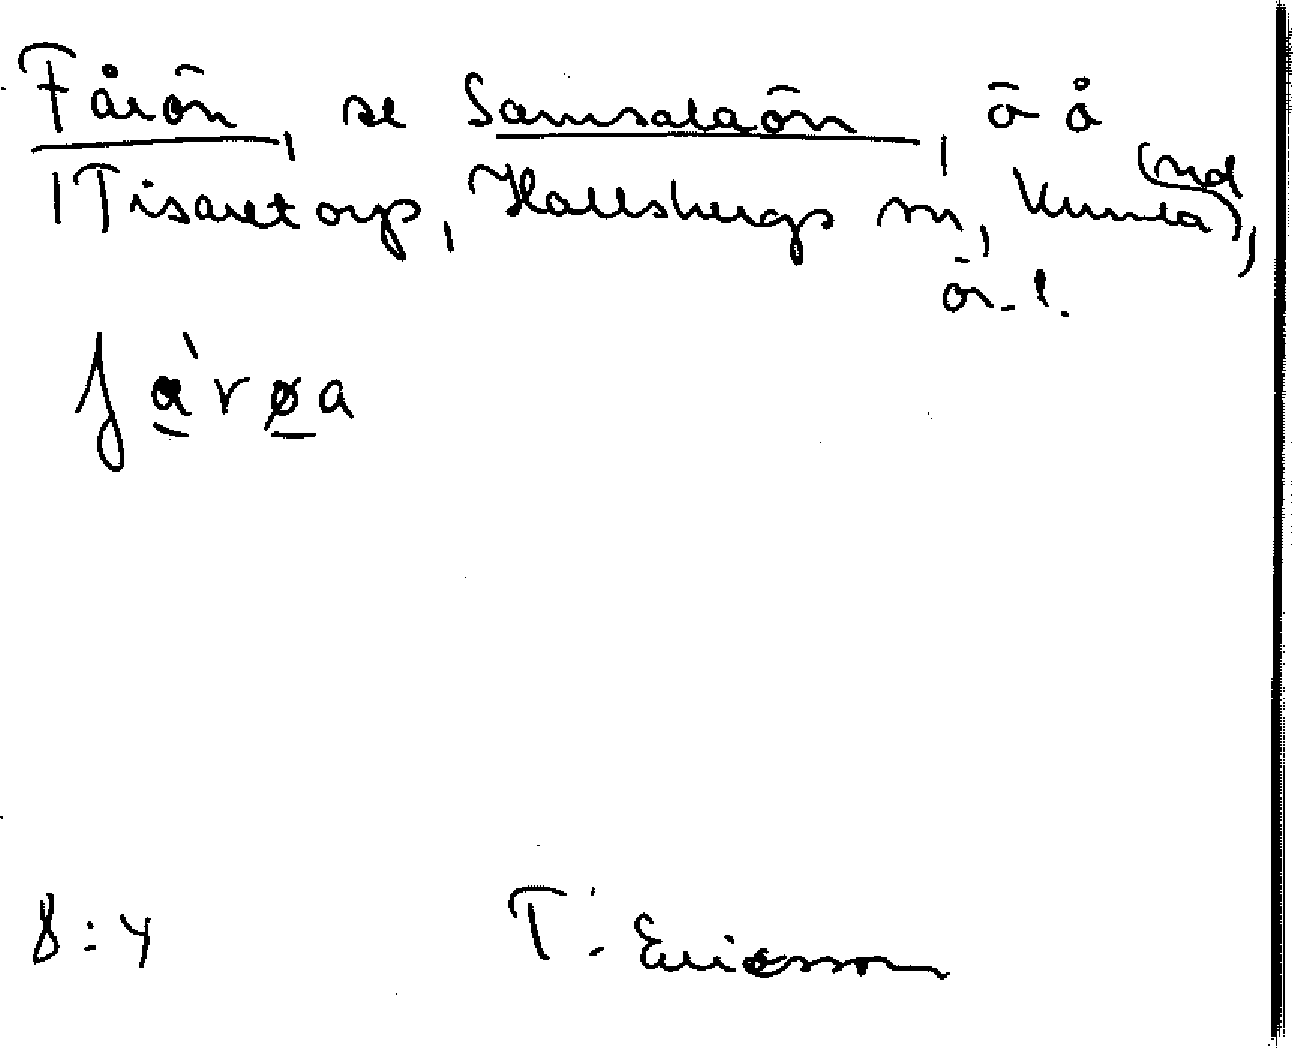 Fårön, se Samsalaön, ö å
Tisaretorp, Hallsbergs sn, Kumla (nd),
ör. l.
fàrøa
8:4 T. Ericsson